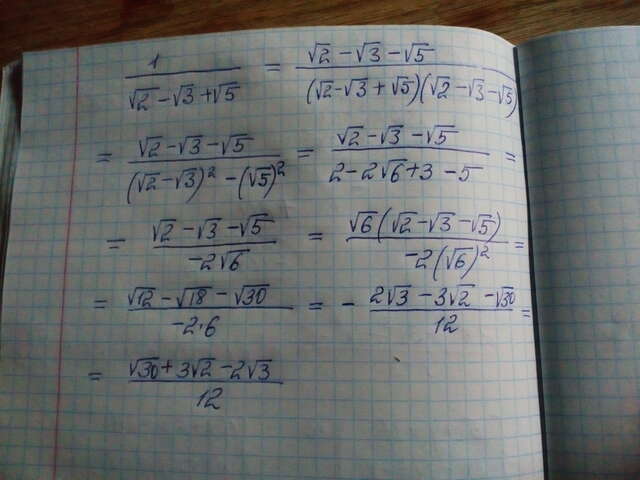 1/(√2 − √3 + √5) = (√2 − √3 − √5)/((√2 − √3 + √5)(√2 − √3 − √5))
= (√2 − √3 − √5)/((√2 − √3)² − (√5)²) = (√2 − √3 − √5)/(2 − 2√6 + 3 − 5) =
= (√2 − √3 − √5)/(−2√6) = (√6(√2 − √3 − √5))/(−2(√6)²) =
= (√12 − √18 − √30)/(−2·6) = − (2√3 − 3√2 − √30)/12 =
= (√30 + 3√2 − 2√3)/12